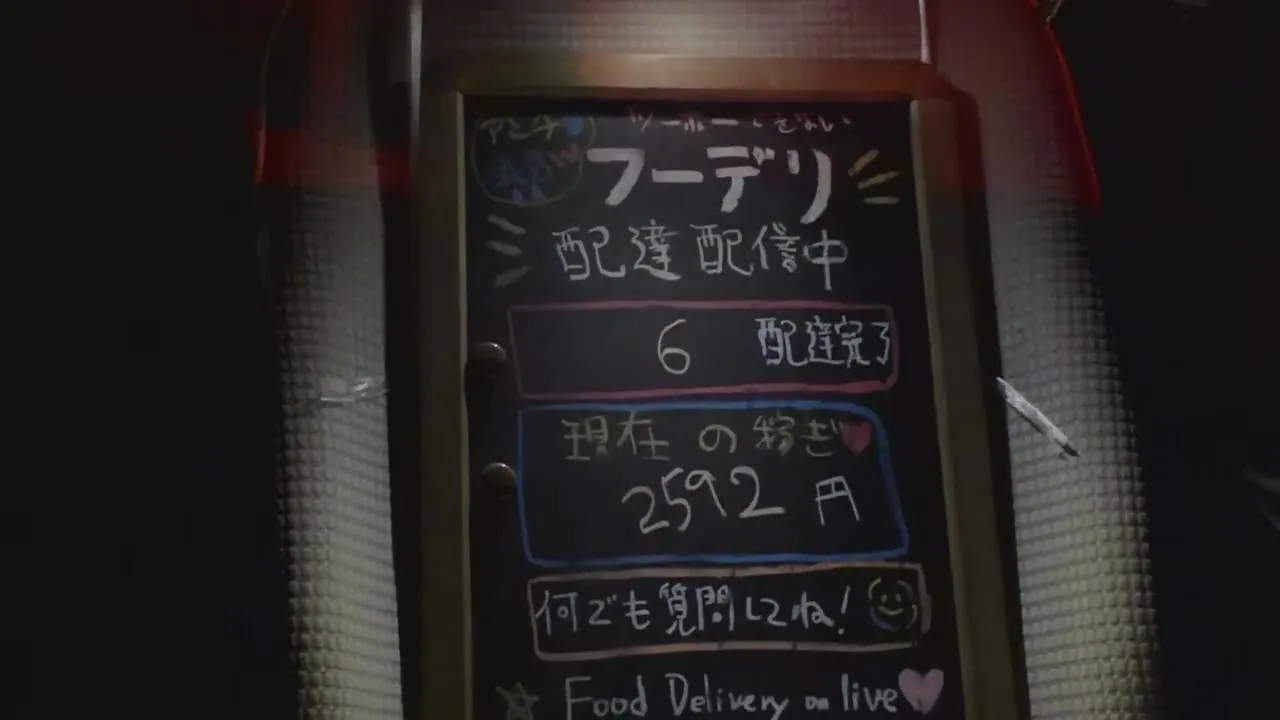 アンチ
フーデリ
配達配信中
6 配達完了
現在の稼ぎ
2592 円
何でも質問してね!
Food Delivery on live